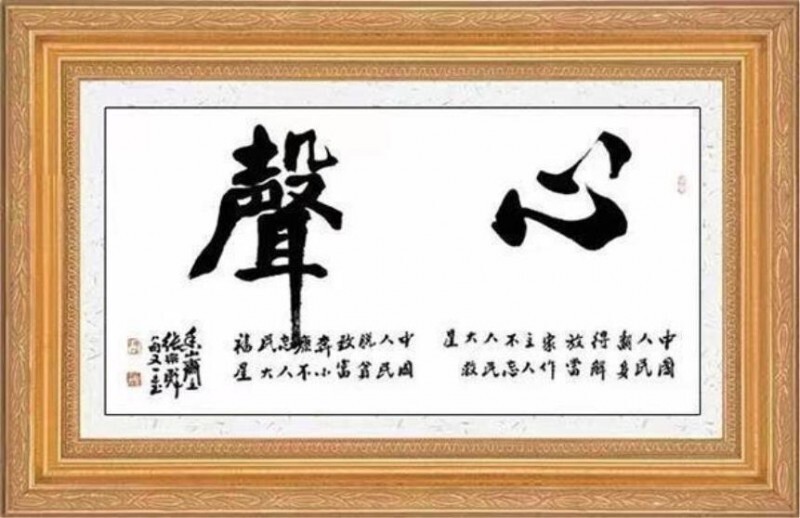 心聲
中國
人民
翻身
得解
放當
家作
主人
不忘
人民
大救
星
中國
人民
脫貧
致富
奔小
康不
忘人
民大
福星